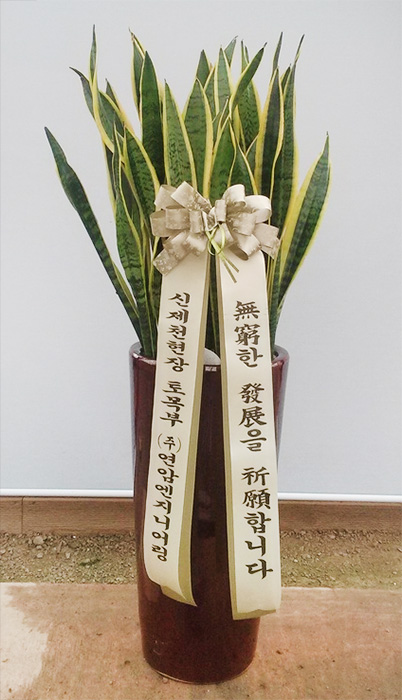 신제천현장 토목부 (주)연암엔지니어링
無窮한 發展을 祈願합니다